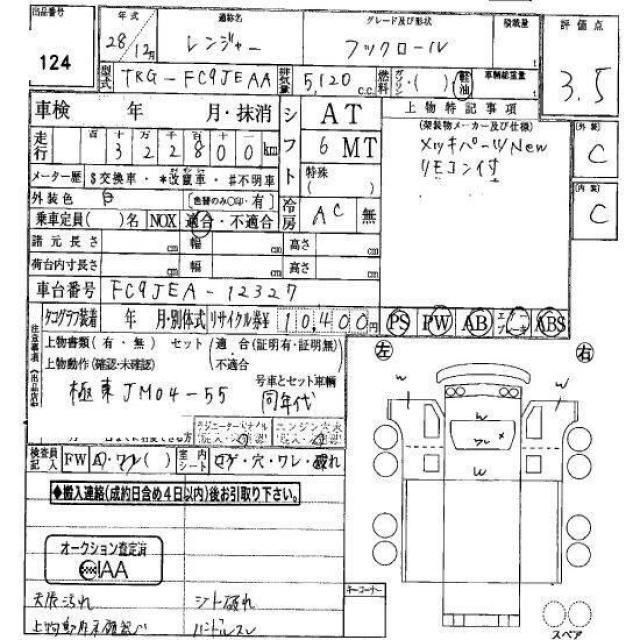 出品番号 年式 通称名 グレード及び形状 積載量 評価点
124 28年12月 レンジャー フックロール t 3.5
型式 TRG-FC9JEAA 排気量 5,120 c.c. 燃料 ガソリン・( ) 軽油 車輌総重量 t
車検 年 月・抹消 シフト AT 上物特記事項
走行 百十万千百十一 322800km 6 MT (架装物メーカー及び仕様)
メッキパーツNew
リモコン付
外装 C
内装 C
メーター歴 $交換車・*改竄車・#不明車 特殊( )
外装色 白 (色替のみ○印・有) 冷房 AC 無
乗車定員( )名 NOX 適合・不適合
諸元長さ cm 幅 cm 高さ cm
荷台内寸長さ cm 幅 cm 高さ cm
車台番号 FC9JEA-12327
タコグラフ装着 年 月・別体式 リサイクル券¥ 10,400円 PS PW AB ABS
注意事項(出品店記
上物書類(有・無) セット(適合(証明有・証明無)
上物動作(確認・未確認) (不適合
極東JM04-55 号車とセット車輌 同年代
左 右
w w
w
ワレ x
w
検査員記入 FW A・ワレ( ) 室内シート コゲ・穴・ワレ・破れ
◆搬入連絡(成約日含め4日以内)後お引取り下さい。
オークション査定済
IAA
キーコーナー
天張汚れ シート破れ
ハンドルスレ
スペア